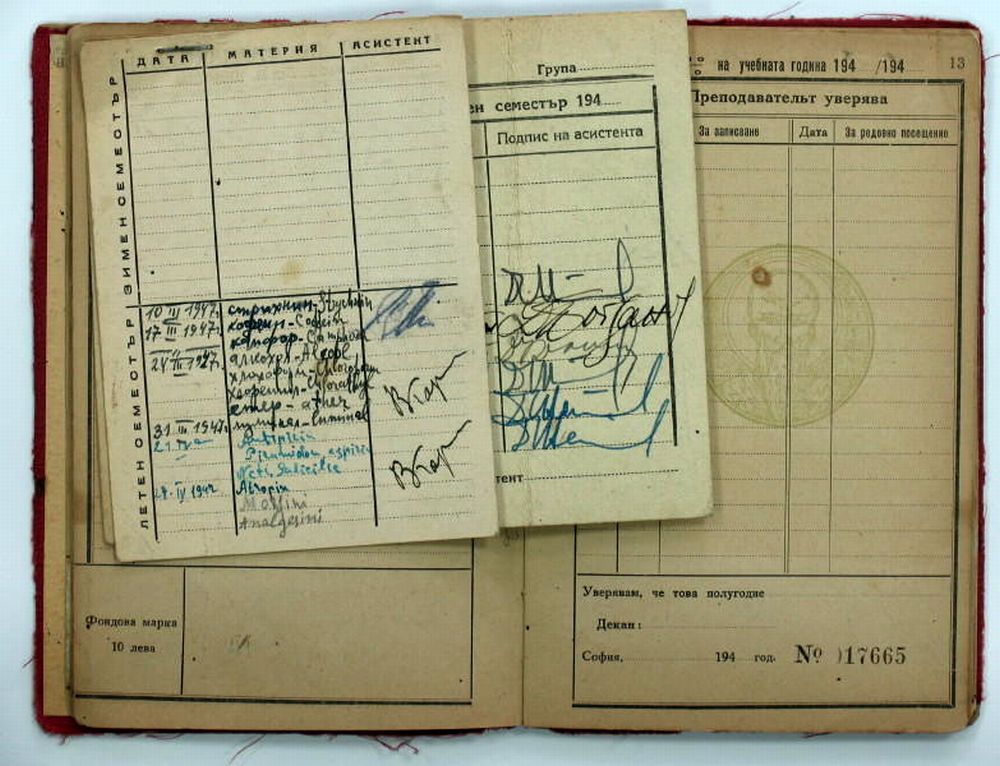 ДАТА МАТЕРИЯ АСИСТЕНТ
ЗИМЕН СЕМЕСТЪР
ЛЕТЕН СЕМЕСТЪР
10 III 1947г. стрихнин - Strychnin
17 III 1947г. кофеин - Cofein
камфор - Camphora
24 III 1947г. алкохол - Alcool
етер - ather
31 III 1947г. луминал - Luminal
Antipirin
Piramidon, aspirin
Natr. Salicilic
Atropin
Morfini
Analgesini
Група
ен семестър 194
Подпис на асистента
тент
на учебната година 194 /194
13
Преподавателът уверява
За записване Дата За редовно посещение
Фондова марка
10 лева
Уверявам, че това полугодие
Декан:
София, 194 год. № 017665